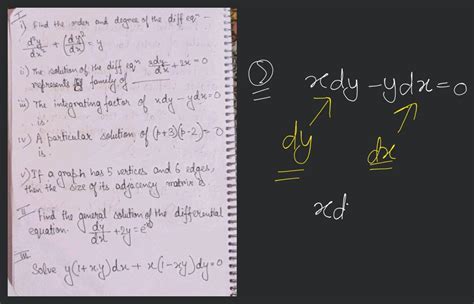 I
i) Find the order and degree of the diff eqⁿ -
d²y/dx² + (dy/dx)² = y
ii) The solution of the diff eqⁿ 3dy/dx + 2x = 0
represents family of
iii) The integrating factor of xdy - ydx = 0
is.
iv) A particular solution of (p+3)(p-2) = 0
is.
v) If a graph has 5 vertices and 6 edges,
then the size of its adjacency matrix is
II Find the general solution of the differential
equation. dy/dx + 2y = e
III
Solve y(1+xy)dx + x(1-xy)dy = 0
xdy - ydx = 0
dy
dx
xd